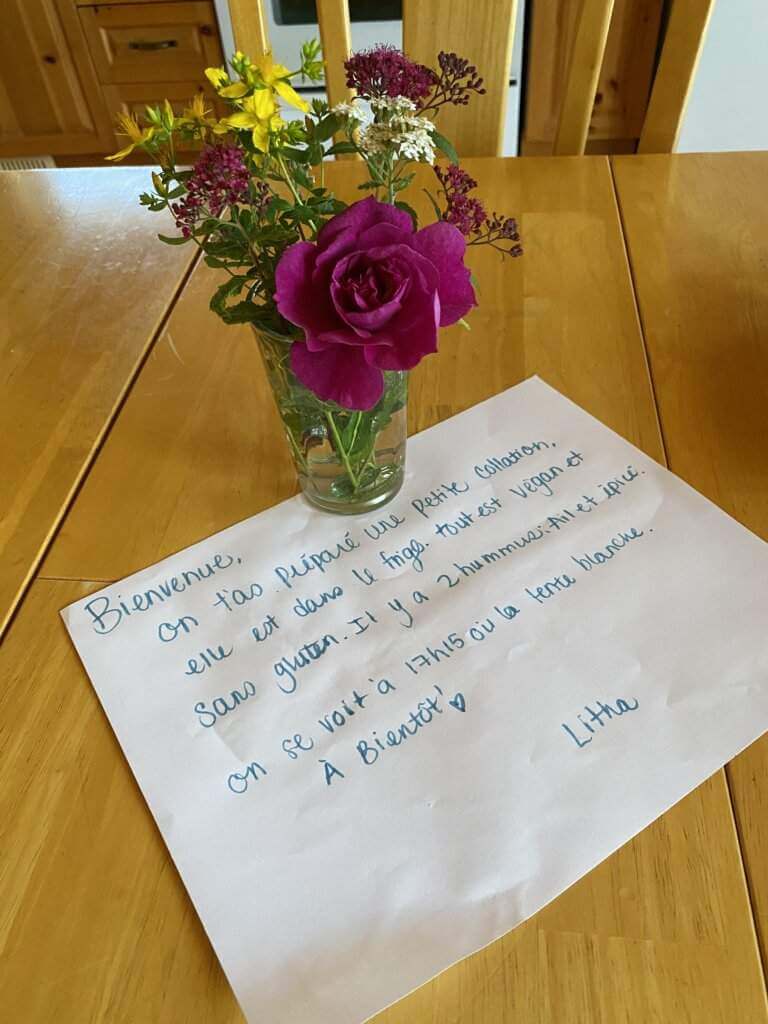 Bienvenue,
on t'as préparé une petite collation,
elle est dans le frigo. tout est végan et
sans gluten. Il y a 2 hummus: Ail et épicé.
on se voit à 17h15 où la tente blanche.
À Bientôt! ♡
Litha